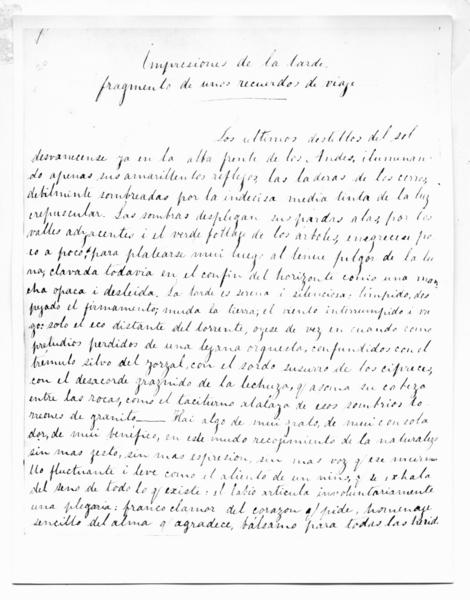 Impresiones de la tarde.
fragmento de unos recuerdos de viaje
Los ultimos destellos del sol
desvanecense ya en la alba frente de los Andes, iluminan-
do apenas sus amarillentos reflejos, las laderas de los cerros,
debilmente sombreadas por la indecisa media tinta de la luz
crepuscular. Las sombras despliegan sus pardas alas, por los
valles adyacentes i el verde follage de los árboles, enegrecese po
co a poco, para platearse mui luego al tenue fulgor de la lu
na, clavada todavia en el confin del horizonte como una man
cha opaca i desleida. La tarde es serena i silenciosa: limpido, des
pejado el firmamento; muda la tierra; el viento interrumpido i va
go: solo el eco distante del torrente, oyese de vez en cuando como
preludios perdidos de una lejana orquesta, confundidos con el
trémulo silvo del zorzal, con el sordo susurro de los cipreces,
con el desacorde graznido de la lechuza, q asoma su cabeza
entre las rocas, como el taciturno atalaya de esos sombrios to
rreones de granito — Hai algo de mui grato, de mui consola
dor, de mui benéfico, en este mudo recojimiento de la naturaleza
sin mas jesto, sin mas espresion, sin mas voz q ese murmu
llo fluctuante i leve como el aliento de un niño, q se exhala
del seno de todo lo q existe: el labio articula involuntariamente
una plegaria: franco clamor del corazon q pide, homenage
sencillo del alma q agradece, bálsamo para todas las herid.